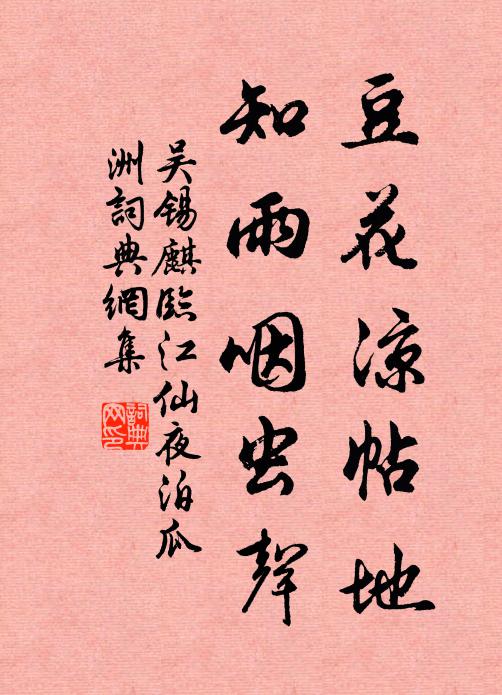 豆花凉帖地
知雨咽虫聲
吴锡麒臨江仙夜泊瓜
洲詞典網集
詞典
网印